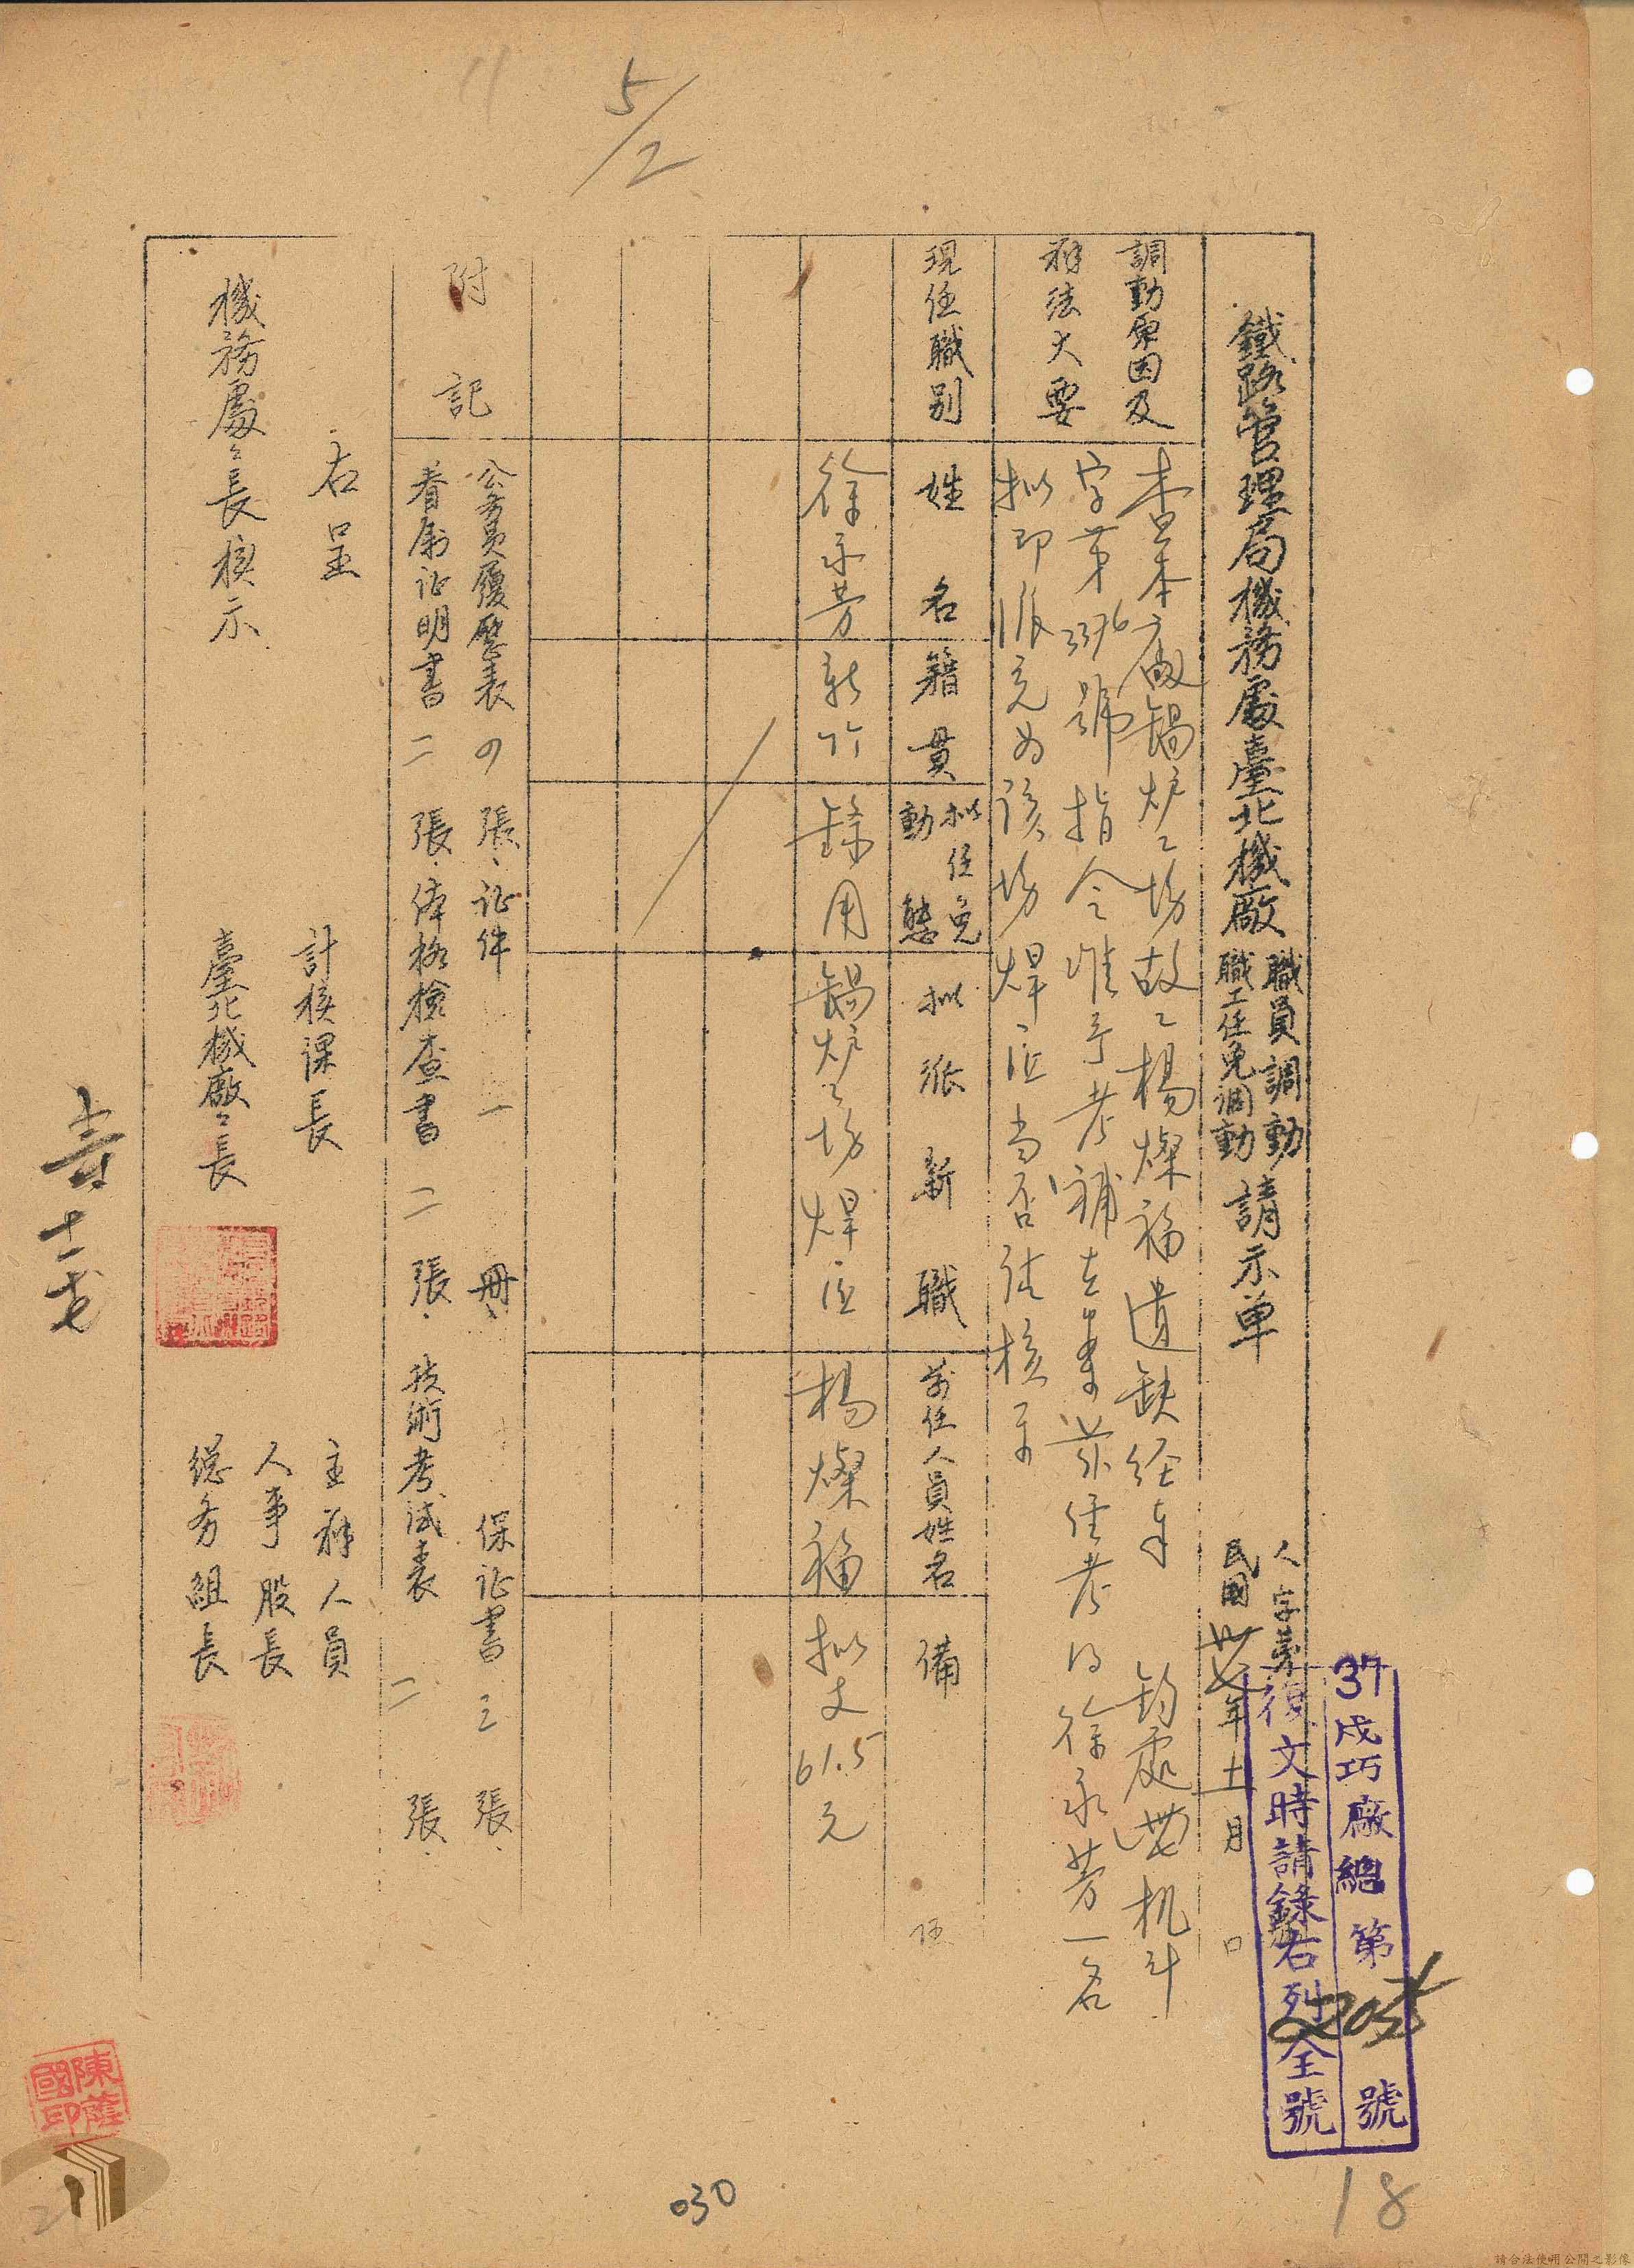 5/2
鐵路管理局機務處臺北機廠
職員調動
職工任免調動
請示单
人字第
民國卅七年十一月 日
37戌巧廠總第 號
復文時請錄右列全號
調動原因及
辦法大要
查本廠鍋炉工場故工楊燦福遺缺经奉 鈞處 机斗
字第3376號指令准予考補 徐永芳一名
拟即派充為該場焊 匠当否 核示
現任職別
姓名
籍貫
拟任免
動態
拟派新職
前任人員姓名
備
徐永芳
新竹
錄用
鍋炉工場焊匠
楊燦福
拟支61.5元
附記
公务員履歷表四張、证件一冊、保证書三張、
眷屬证明書二張、体格檢查書二張、技術考试表二張、
右呈
機務處處長核示
計核課長
臺北機廠廠長
主辦人員
人事股長
総务組長
陳蔭國印
030
18
請合法使用公開之影像